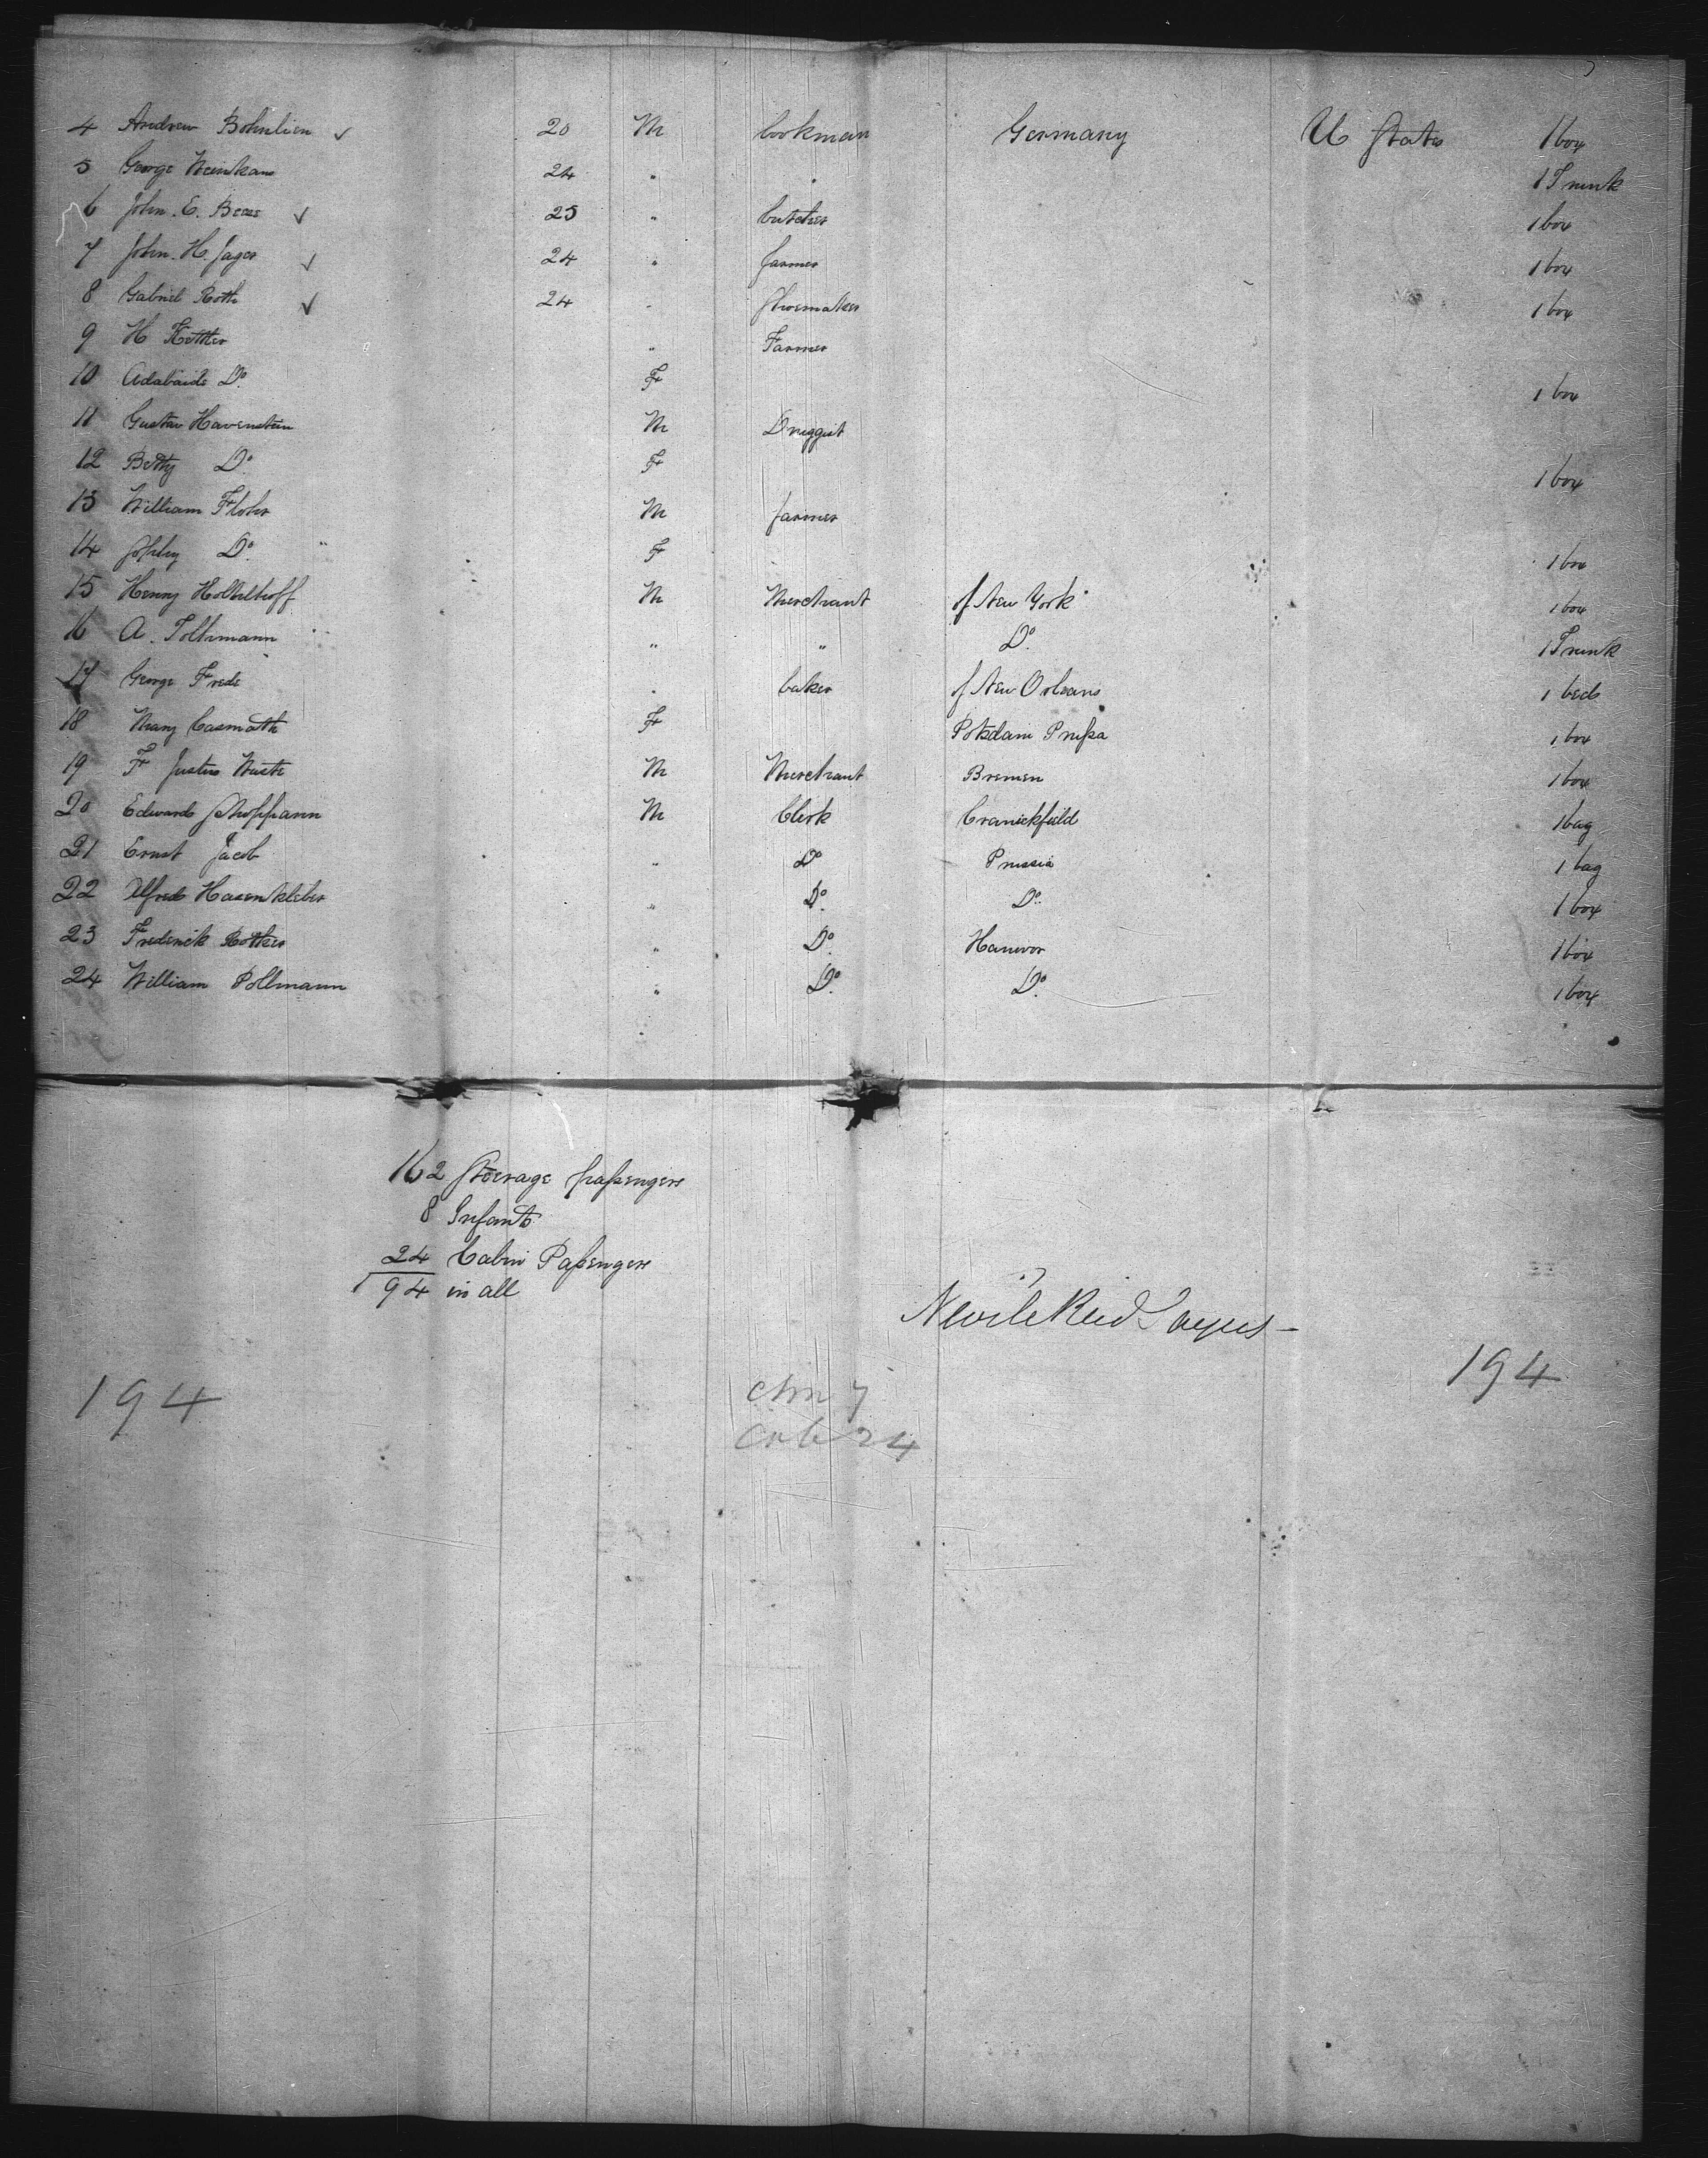 4 Andrew Bohnlien ✓ 20 M bookman Germany U States 1 box
5 George Weinkam 24 " " 1 Trunk
6 John. E. Beees ✓ 25 " butcher 1 box
7 John. H. Jager ✓ 24 " farmer 1 box
8 Gabriel Roth ✓ 24 " Shoemaker 1 box
9 H " Farmer
10 Do. F 1 box
11 Gustav Havenstein M Druggist
12 Betty Do. F 1 box
13 William Flohr M farmer
14 Do. F 1 box
15 Henry M Merchant of New York 1 box
16 A. Tolkmann " " Do. 1 Trunk
17 George Frede " baker of New Orleans 1 bed
18 Mary Casmath F Potsdam 1 box
19 F Justus Wuste M Merchant Bremen 1 box
20 Edward M Clerk Cranickfield 1 bag
21 Ernst Jacob " Do Prussia 1 bag
22 Alfred Hasenkleber " Do. Do. 1 box
23 Frederick Rottker " Do. Hanvor 1 box
24 William Pollmann " Do. Do. 1 box
162 Steerage passengers
8 Infants
24 Cabin Passengers
194 in all
194 194
7
Cab 24